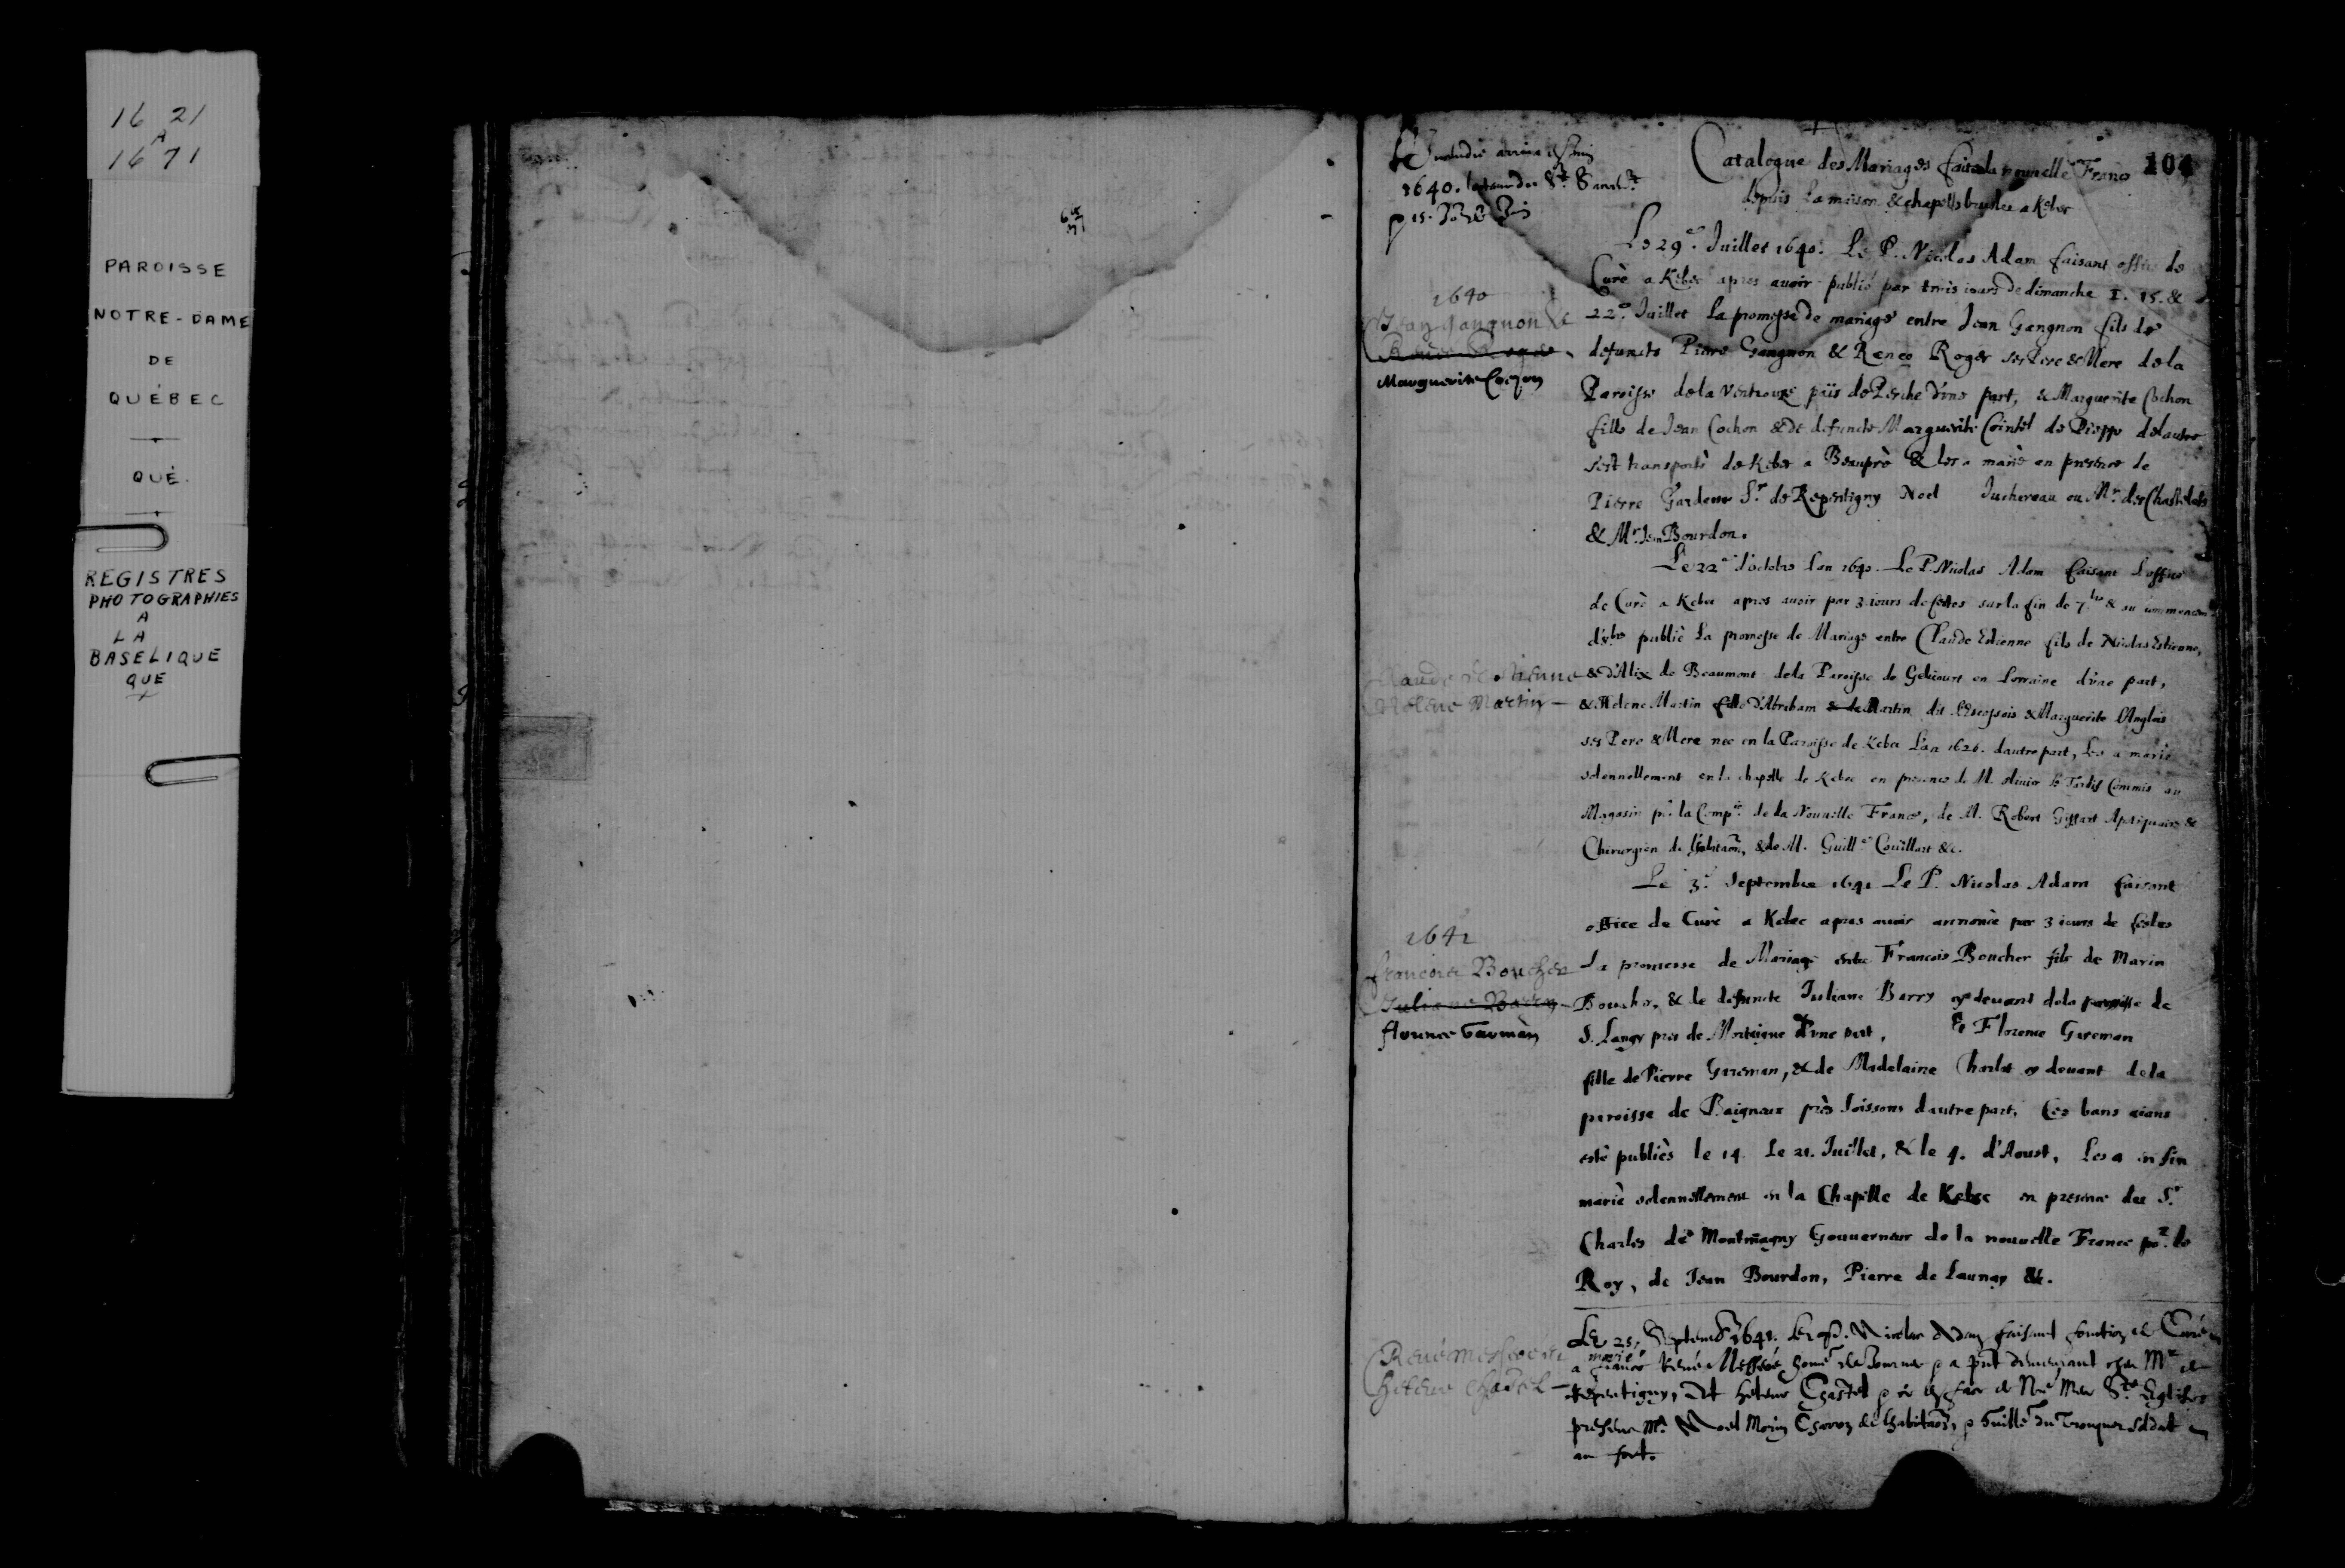 16 21
A
16 71
PAROISSE
NOTRE-DAME
DE
QUÉBEC
QUÉ.
REGISTRES
PHOTOGRAPHIES
A
LA
BASELIQUE
QUE
1640.
Catalogue des Mariages faits la nouvelle France 104
depuis la maison & chapelle bruslee a Kebec
Le 29e. Juillet 1640. Le P. Nicolas Adam faisant office de
Curè a Kebec apres avoir publié par trois iours de dimanche 1. 15. &
1640
Jean gangnon &
22e. Juillet la promesse de mariage entre Jean Gangnon fils de
defuncts Pierre Gangnon & Renee Roger ses Pere & Mere de la
Marguerite Cochon
Paroisse de la Ventrouze païs de Perche d'une part, & Marguerite Cochon
fille de Jean Cochon & de defuncte Marguerite Cointel de Dieppe de l'autre
s'est transportè de Kebec a Beauprè & les a mariè en presence de
Pierre Gardeur Sr. de Repentigny Noel Juchereau ou Mr. des Chastelets
& Mr. Jean Bourdon.
Le 22e d'octobre l'an 1640. Le P. Nicolas Adam faisant l'office
de Curè a Kebec apres avoir par 3 iours de festes sur la fin de 7bre & au commencem
d'8bre publiè la promesse de Mariage entre Claude Estienne fils de Nicolas Estienne,
Claude Estienne
& d'Alix de Beaumont de la Paroisse de Gelicourt en Lorraine d'une part,
Helene Martin
& Helene Martin fille d'Abraham & de Martin dit l'Escossois & Marguerite l'Anglois
ses Pere & Mere nee en la Paroisse de Kebec l'an 1626. d'autre part, les a mariè
solennellement en la chapelle de Kebec en presence de M. olivier le Tardif Commis au
Magasin pr. la Compie. de la Nouvelle France, de M. Robert Giffart Aptiquaire &
Chirurgien de l'habitaōn, & de M. Guille Coüillart &c.
Le 3e. Septembre 1641 Le P. Nicolas Adam faisant
office de Curè a Kebec apres avoir annoncè par 3 iours de festes
1641
francois Boucher
la promesse de Mariage entre Francois Boucher fils de Marin
Juliane Barry
Boucher, & de defuncte Juliane Barry cy devant de la paroisse de
florence Garman
S. Langy pres de Mortaigne d'une part, & Florence Gareman
fille de Pierre Gareman, & de Madelaine Charlot cy devant de la
paroisse de Baigneux près Soissons d'autre part, les bans aians
estè publiès le 14. Le 21. Juillet, & le 4. d'Aoust, Les a en fin
mariè solennellement en la Chapelle de Kebec en presence du Sr.
Charles de Montmagny Gouverneur de la nouvelle France por. le
Roy, de Jean Bourdon, Pierre de Launay &c.
Le 25, Septemb 1641. Le P. Nicolas Adam faisant fonction de Curé
René Messeré
Helene Chastel
mariè
a René Messeré
Repentigny, et helene Chastel
presence Noel Morin Charon de l'habitaōn, Guille du Tronquer soldat
au fort.